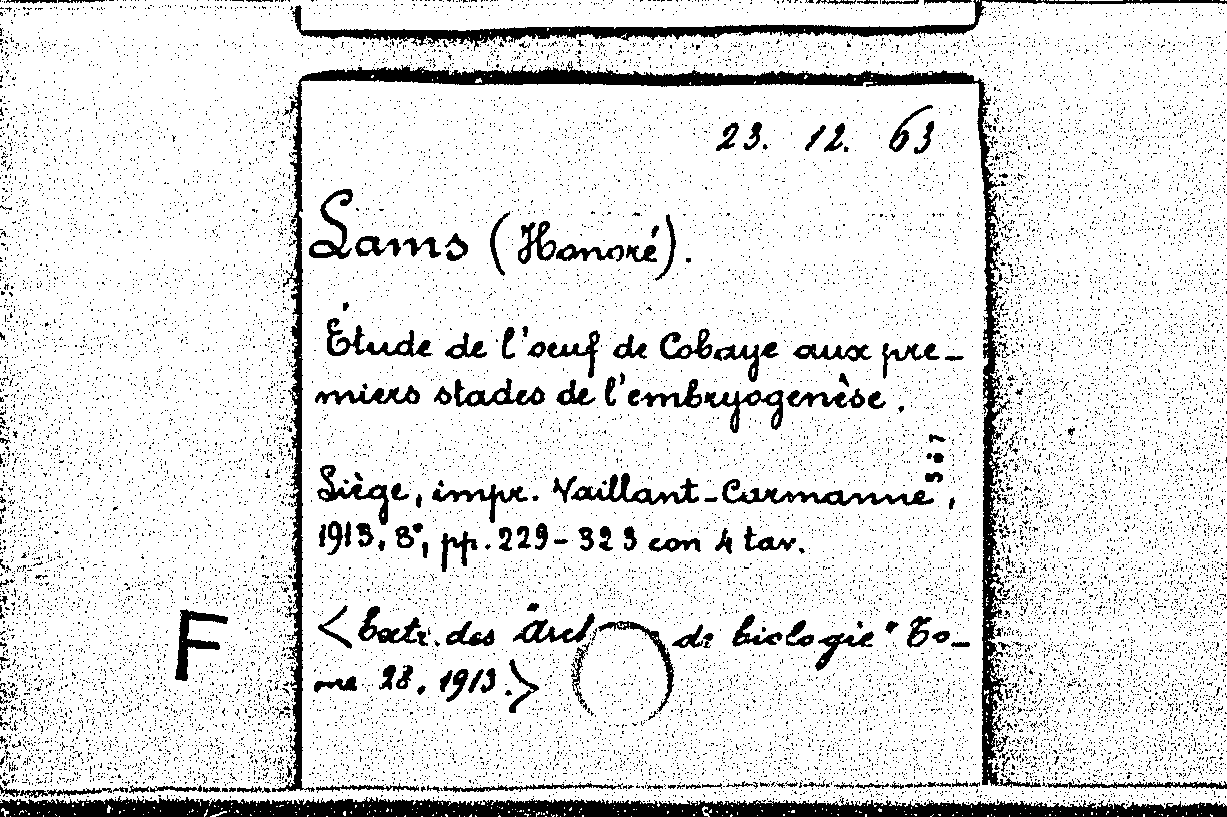 23. 12. 63
Lams (Honoré).
Étude de l'œuf de Cobaye aux pre-
miers stades de l'embryogenèse.
587
Liège, impr. Vaillant-Carmanne,
1913, 8°, pp. 229-323 con 4 tav.
<Extr. des "Arch de biologie" To-
me 28, 1913.>
F